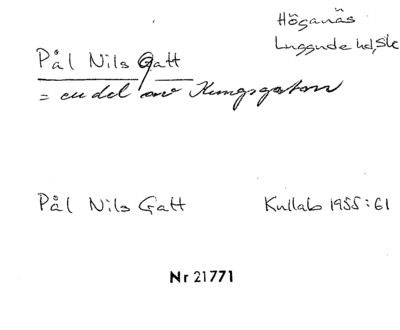 Höganäs
Luggude hd, Sk
Pål Nils Gatt
= en del av Kungsgatan
Pål Nils Gatt
Kullab 1955:61
Nr 21771